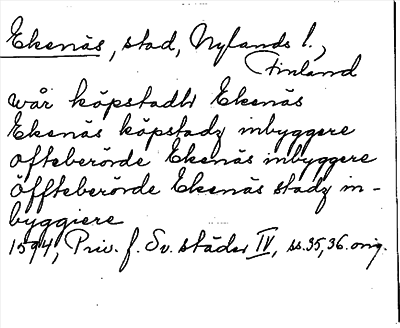 Ekenäs, stad, Nylands l.,
Finland
wår köpstadh Ekenäs
Ekenäs köpstadz inbyggere
ofteberörde Ekenäs inbyggere
öffteberörde Ekenäs stadz in-
byggiere
1594, Priv. f. Sv. städer IV, ss. 35, 36. orig.